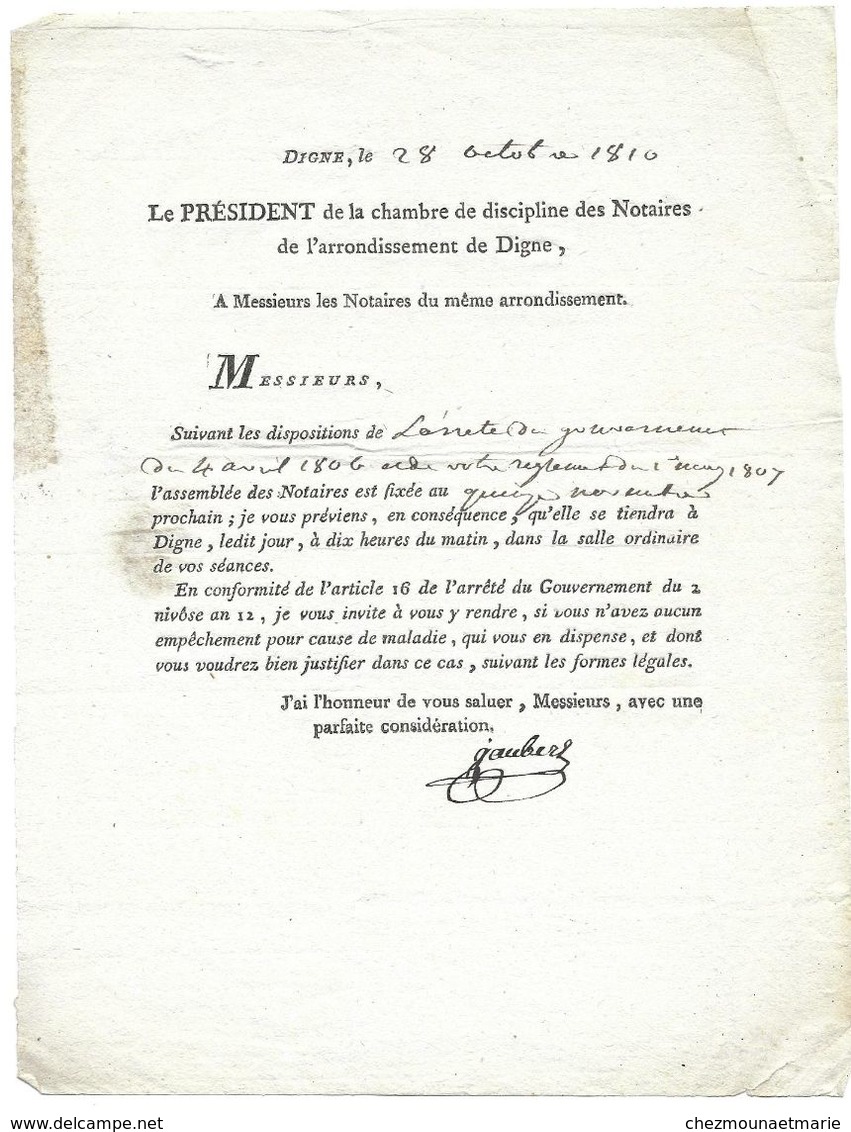 DIGNE, le 28 octobre 1810
Le PRÉSIDENT de la chambre de discipline des Notaires
de l'arrondissement de Digne,
A Messieurs les Notaires du même arrondissement.
MESSIEURS,
Suivant les dispositions de L'arrete du gouvernement
du 4 avril 1806 et de votre reglement du 1er may 1807
l'assemblée des Notaires est fixée au quinze novembre
prochain ; je vous préviens, en conséquence, qu'elle se tiendra à
Digne, ledit jour, à dix heures du matin, dans la salle ordinaire
de vos séances.
En conformité de l'article 16 de l'arrêté du Gouvernement du 2
nivôse an 12, je vous invite à vous y rendre, si vous n'avez aucun
empêchement pour cause de maladie, qui vous en dispense, et dont
vous voudrez bien justifier dans ce cas, suivant les formes légales.
J'ai l'honneur de vous saluer, Messieurs, avec une
parfaite considération.
gaubert
www.delcampe.net
chezmounaetmarie